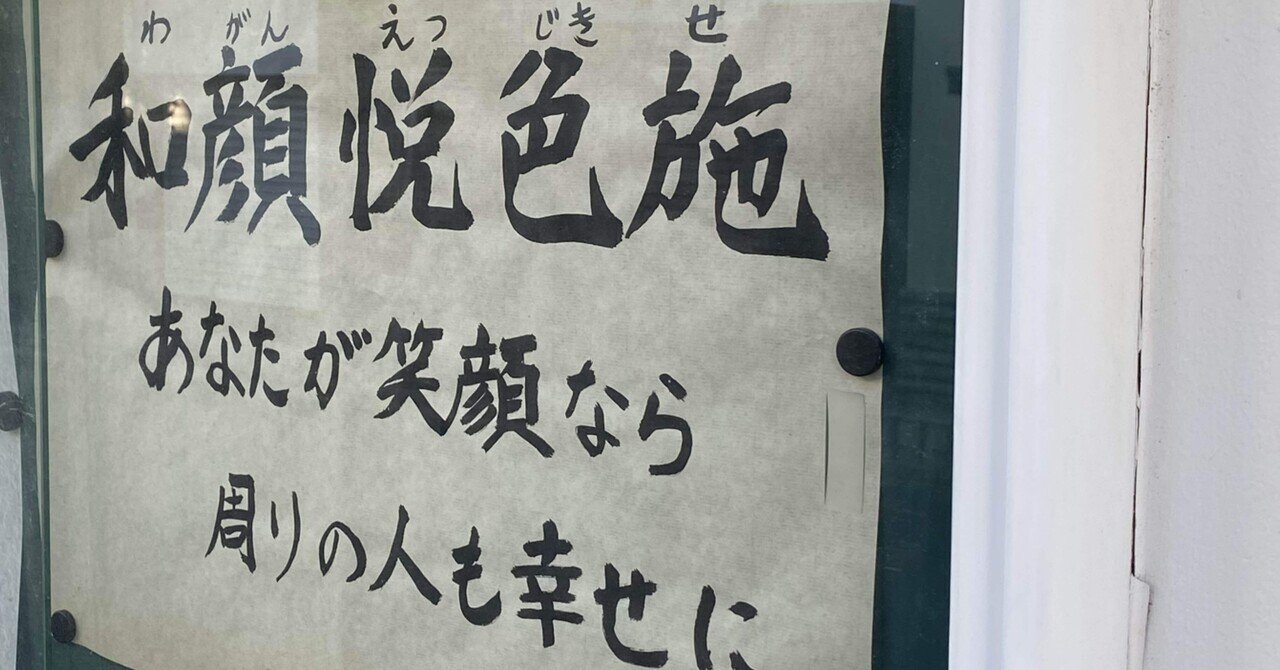 わ がん えつ じき せ
和顔悦色施
あなたが笑顔なら
周りの人も幸せに